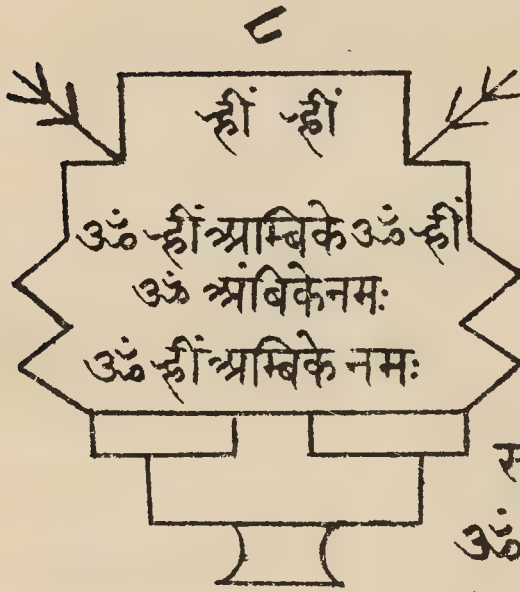 ८
ह्रीं ह्रीं
ॐ ह्रीं आम्बिके ॐ ह्रीं
ॐ आंबिके नमः
ॐ ह्रीं आम्बिके नमः
ॐ